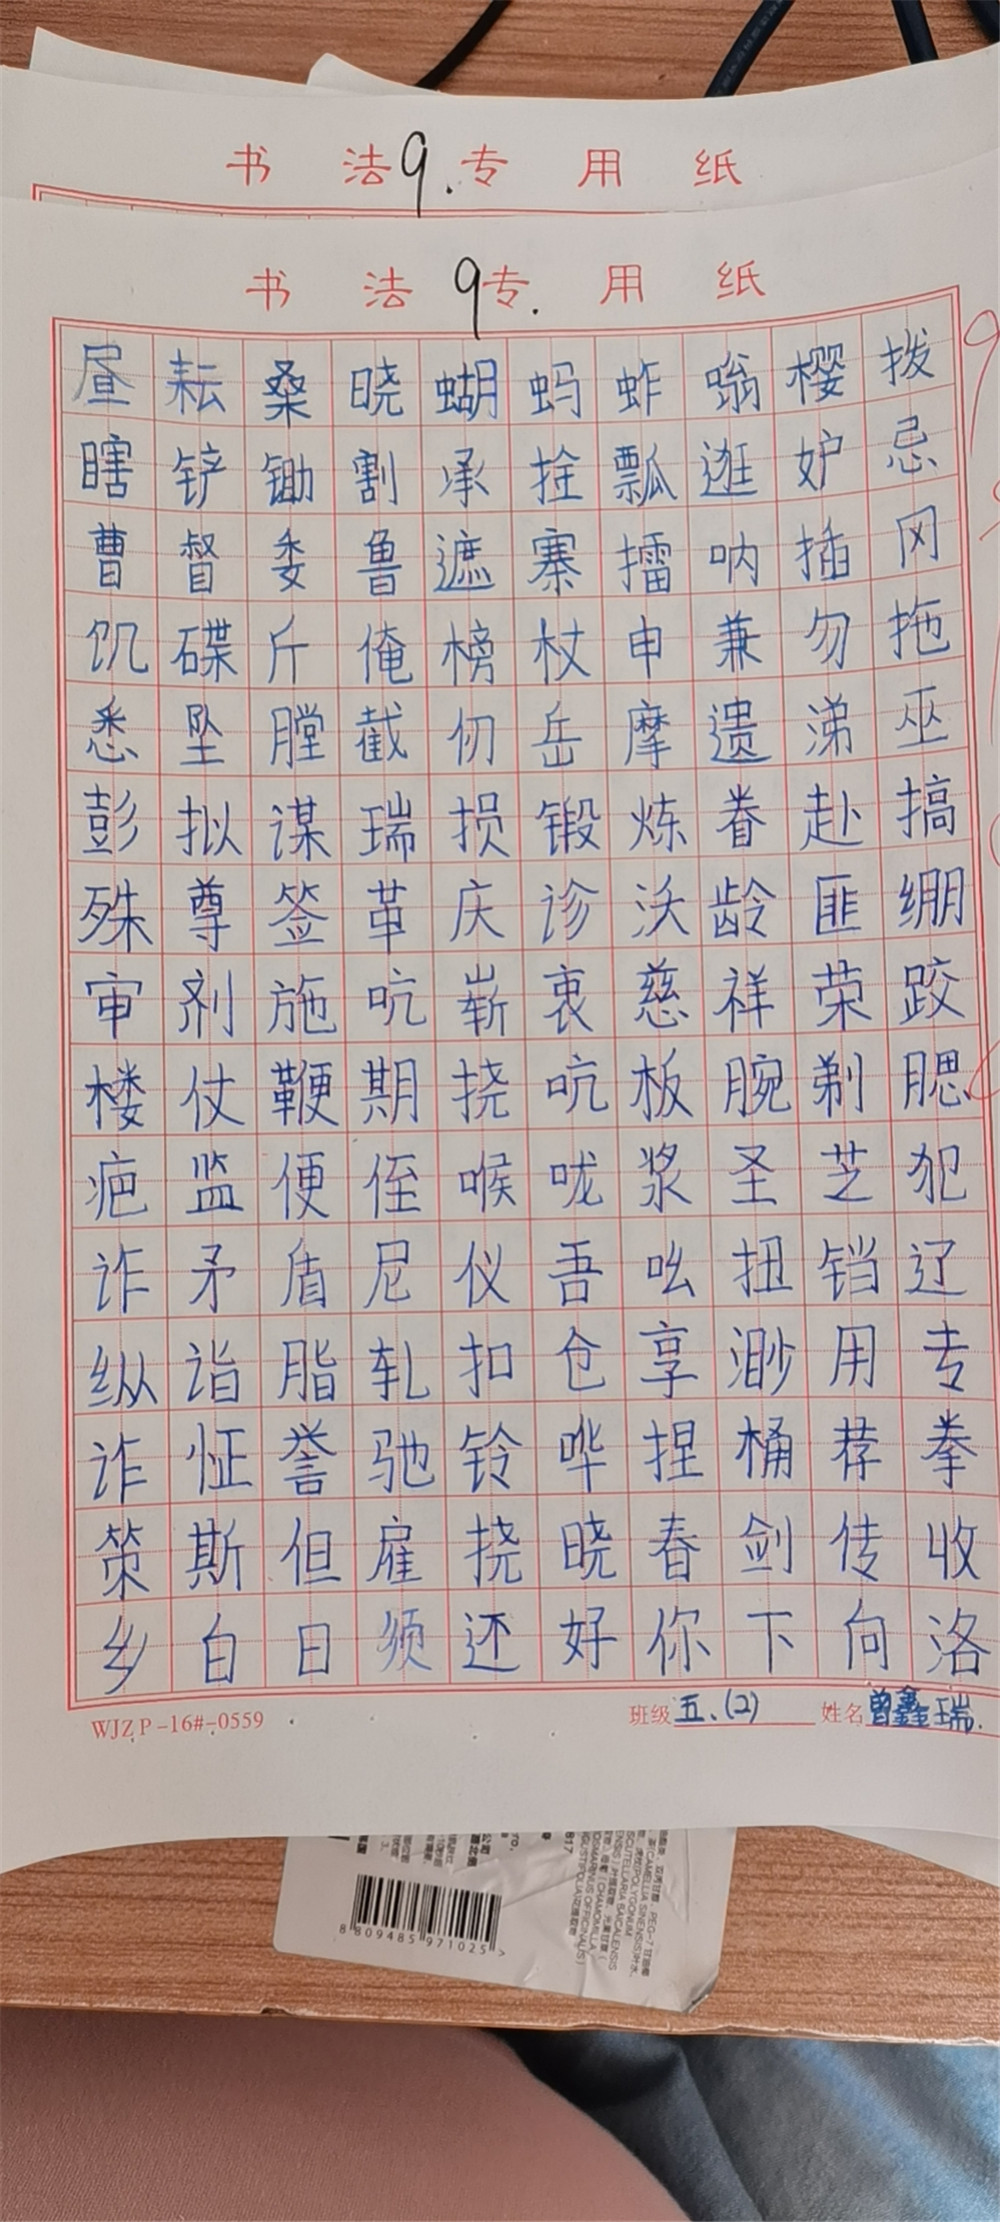 书法9.专用纸
书法9专.用纸
昼耘桑晓蝴蚂蚱嗡樱拨
瞎铲锄割承拴瓢逛妒忌
曹督委鲁遮寨擂呐插冈
饥碟斤俺榜杖申兼勿拖
悉坠膛截仞岳摩遗涕巫
彭拟谋瑞损锻炼眷赴搞
殊尊签革庆诊沃龄匪绷
审剂施吭崭衷慈祥荣跤
楼仗鞭期挠吭板腕剃腮
疤监便侄喉咙浆圣芝犯
诈矛盾尼仪吾吆扭铛辽
纵诣脂轧扣仓享渺用专
诈怔誉驰铃哗捏桶荐拳
策斯但雇挠晓春剑传收
乡白日须还好你下向洛
WJZP-16#-0559 班级五.(2) 姓名曾鑫瑞.
8 809485 971025 >